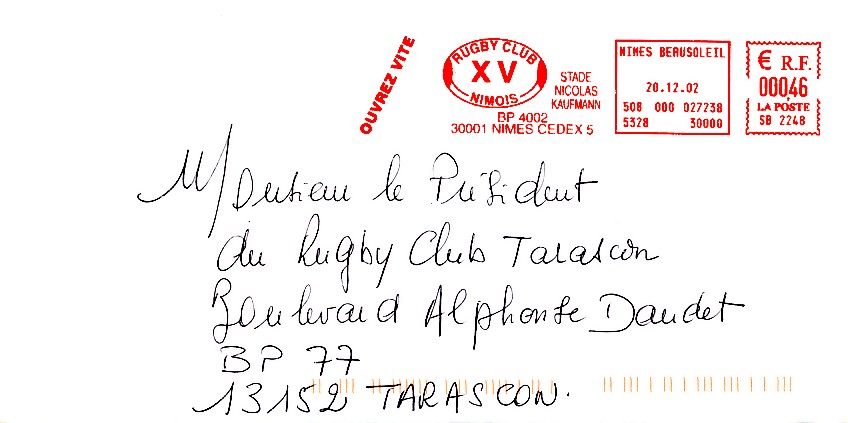 OUVREZ VITE
RUGBY CLUB
XV
NIMOIS
STADE
NICOLAS
KAUFMANN
BP 4002
30001 NIMES CEDEX 5
NIMES BEAUSOLEIL
20.12.02
508 000 027238
5328 30000
€ R.F.
00046
LA POSTE
SB 2248
Monsieur le Président
du Rugby Club Tarascon
Boulevard Alphonse Daudet
BP 77
13152 TARASCON.